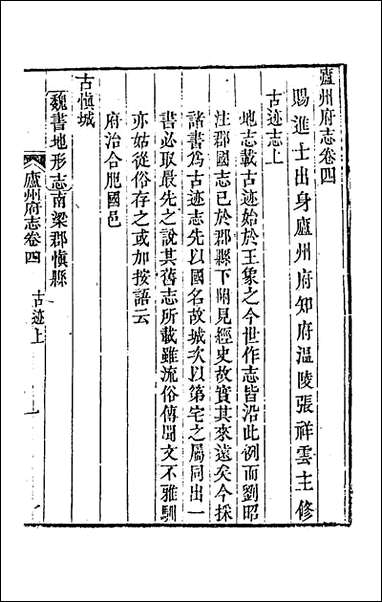 廬州府志卷四
賜進士出身廬州府知府溫陵張祥雲主修
古迹志上
地志載古迹始於王象之今世作志皆沿此例而劉昭
注郡國志已於郡縣下附見經史故實其來遠矣今採
諸書爲古迹志先以國名故城次以第宅之屬同出一
書必取最先之說其舊志所載雖流俗傳聞文不雅馴
亦姑從俗存之或加按語云
府治合肥國邑
古愼城
魏書地形志南梁郡愼縣
廬州府志卷四 古迹上 一